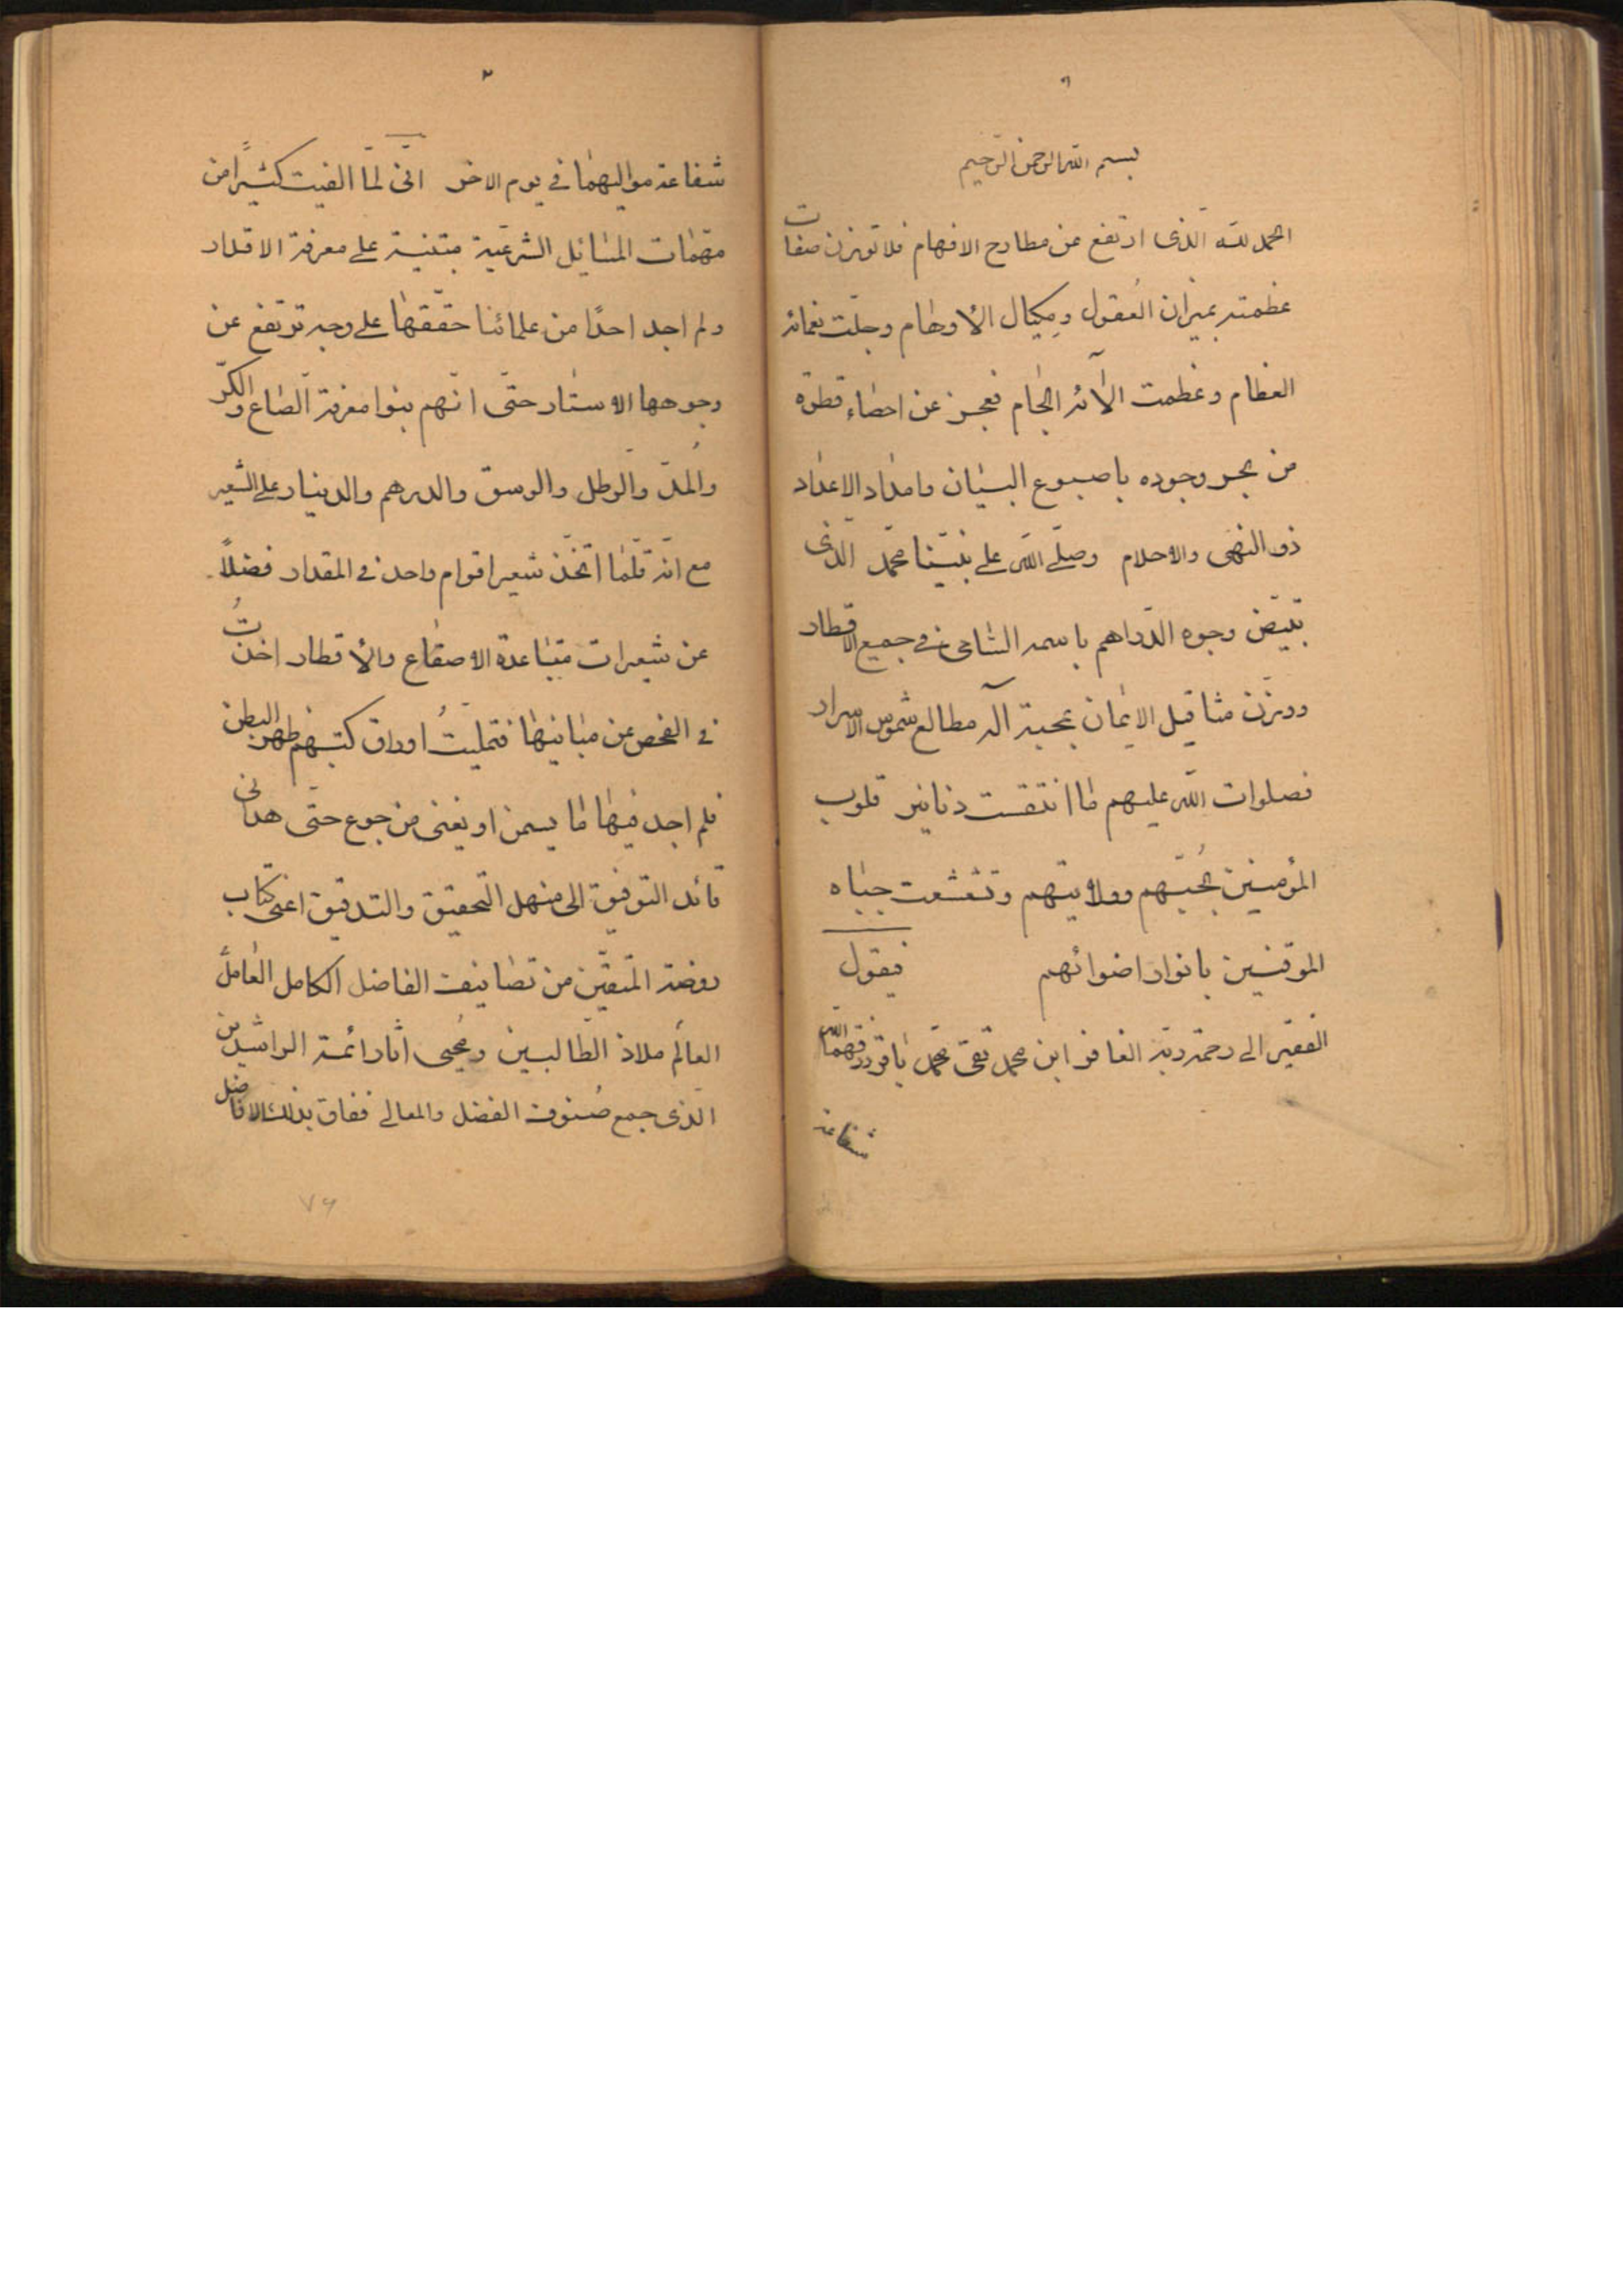 ١
بسم الله الرحمن الرحيم
الحمد لله الذى ارتفع عن مطارح الافهام فلا توزن صفات
عظمته بميزان العُقول ومِكيال الأوهام وجلّت نعمائه
العظام وعظمت آلائه الجسام فعجز عن احصاء قطرة
من بحر وجوده باصبوع البنان وامداد الاعداد
ذو النهى والاحلام وصلّى الله على نبيّنا محمّد الّذى
بيّض وجوه الدّراهم باسمه السّامى فى جميع الاقطار
ووزن مثاقيل الايمان بمحبة آله مطالع شموس الاسرار
فصلوات الله عليهم ما انتقشت دنانير قلوب
المؤمنين بحُبّهم وولايتهم وتشعشعت جباه
الموقنين بانوار اضوائهم فيقول
الفقير الى رحمة ربّه الغافر ابن محمد تقى محمّد باقر رزقهما الله
شفاعة
٢
شفاعة مواليهما فى يوم الاخر انّى لمّا الفيت كثيرًا من
مهمّات المسايل الشرعيّة مبتنية على معرفة الاقدار
ولم اجد احدًا من علمائنا حقّقها على وجه ترتفع عن
وجوهها الاستار حتّى انّهم بنوا معرفة الصّاع والكرّ
والمُدّ والرّطل والوسق والدرهم والدينار على الشعير
مع انّه قلّما اتّخذ شعير اقوام واحد فى المقدار فضلاً
عن شعيرات متباعدة الاصقاع والأقطار اخذتُ
فى الفحص عن مبانيها فتمليتُ اوراق كتبهم ظهر البطن
فلم اجد فيها ما يسمن او يغنى من جوع حتّى هدانى
قائد التوفيق الى منهل التحقيق والتدقيق اعنى كتاب
روضة المتّقين من تصانيف الفاضل الكامل العامل
العالم ملاذ الطّالبين ومُحيى اثار ائمة الراشدين
الّذى جمع صُنوف الفضل والمعالى ففاق بذلك الافاضل
٧٦